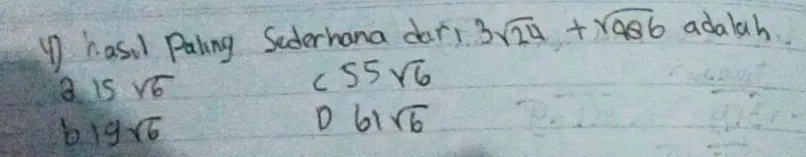 4) hasil Paling Sederhana dari 3√24 + √486 adalah.
a 15 √6 c 55√6
b 19√6 D 61√6